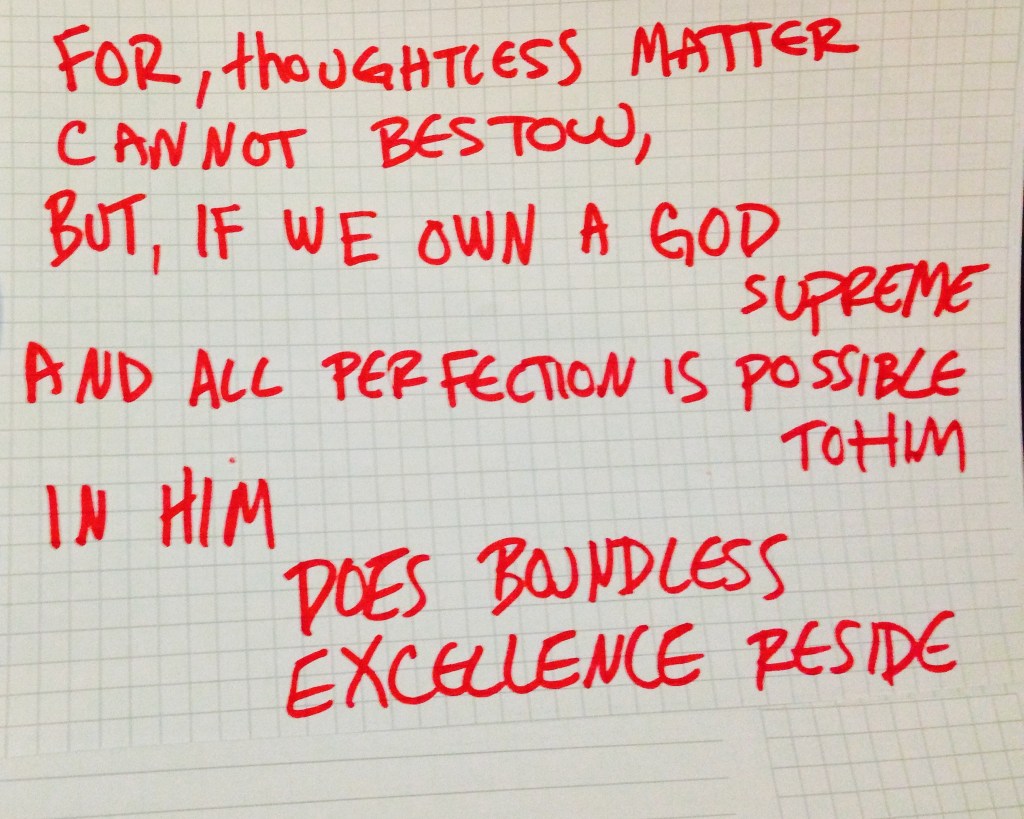 FOR, thOUGHTLESS MATTER
CANNOT BESTOW,
BUT, IF WE OWN A GOD
SUPREME
AND ALL PERFECTION IS POSSIBLE
TO HIM
IN HIM
DOES BOUNDLESS
EXCELLENCE RESIDE